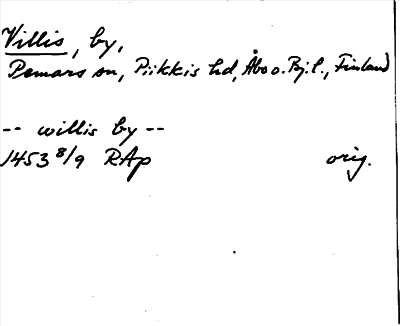 Villis, by,
Pemars sn, Piikkis hd, Åbo o. Bj. l., Finland
-- willis by --
1453 8/9 RAp orig.